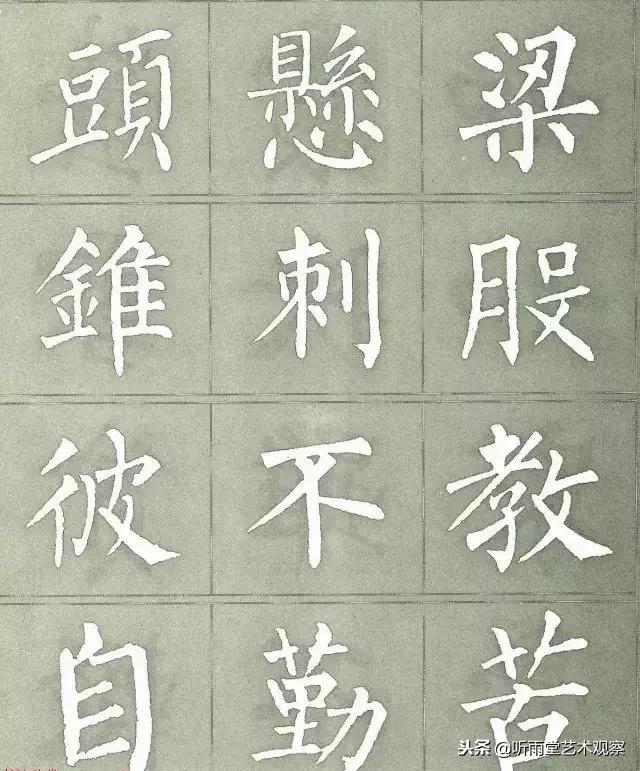 頭懸梁
錐刺股
彼不教
自勤苦
头条 @听雨堂艺术观察